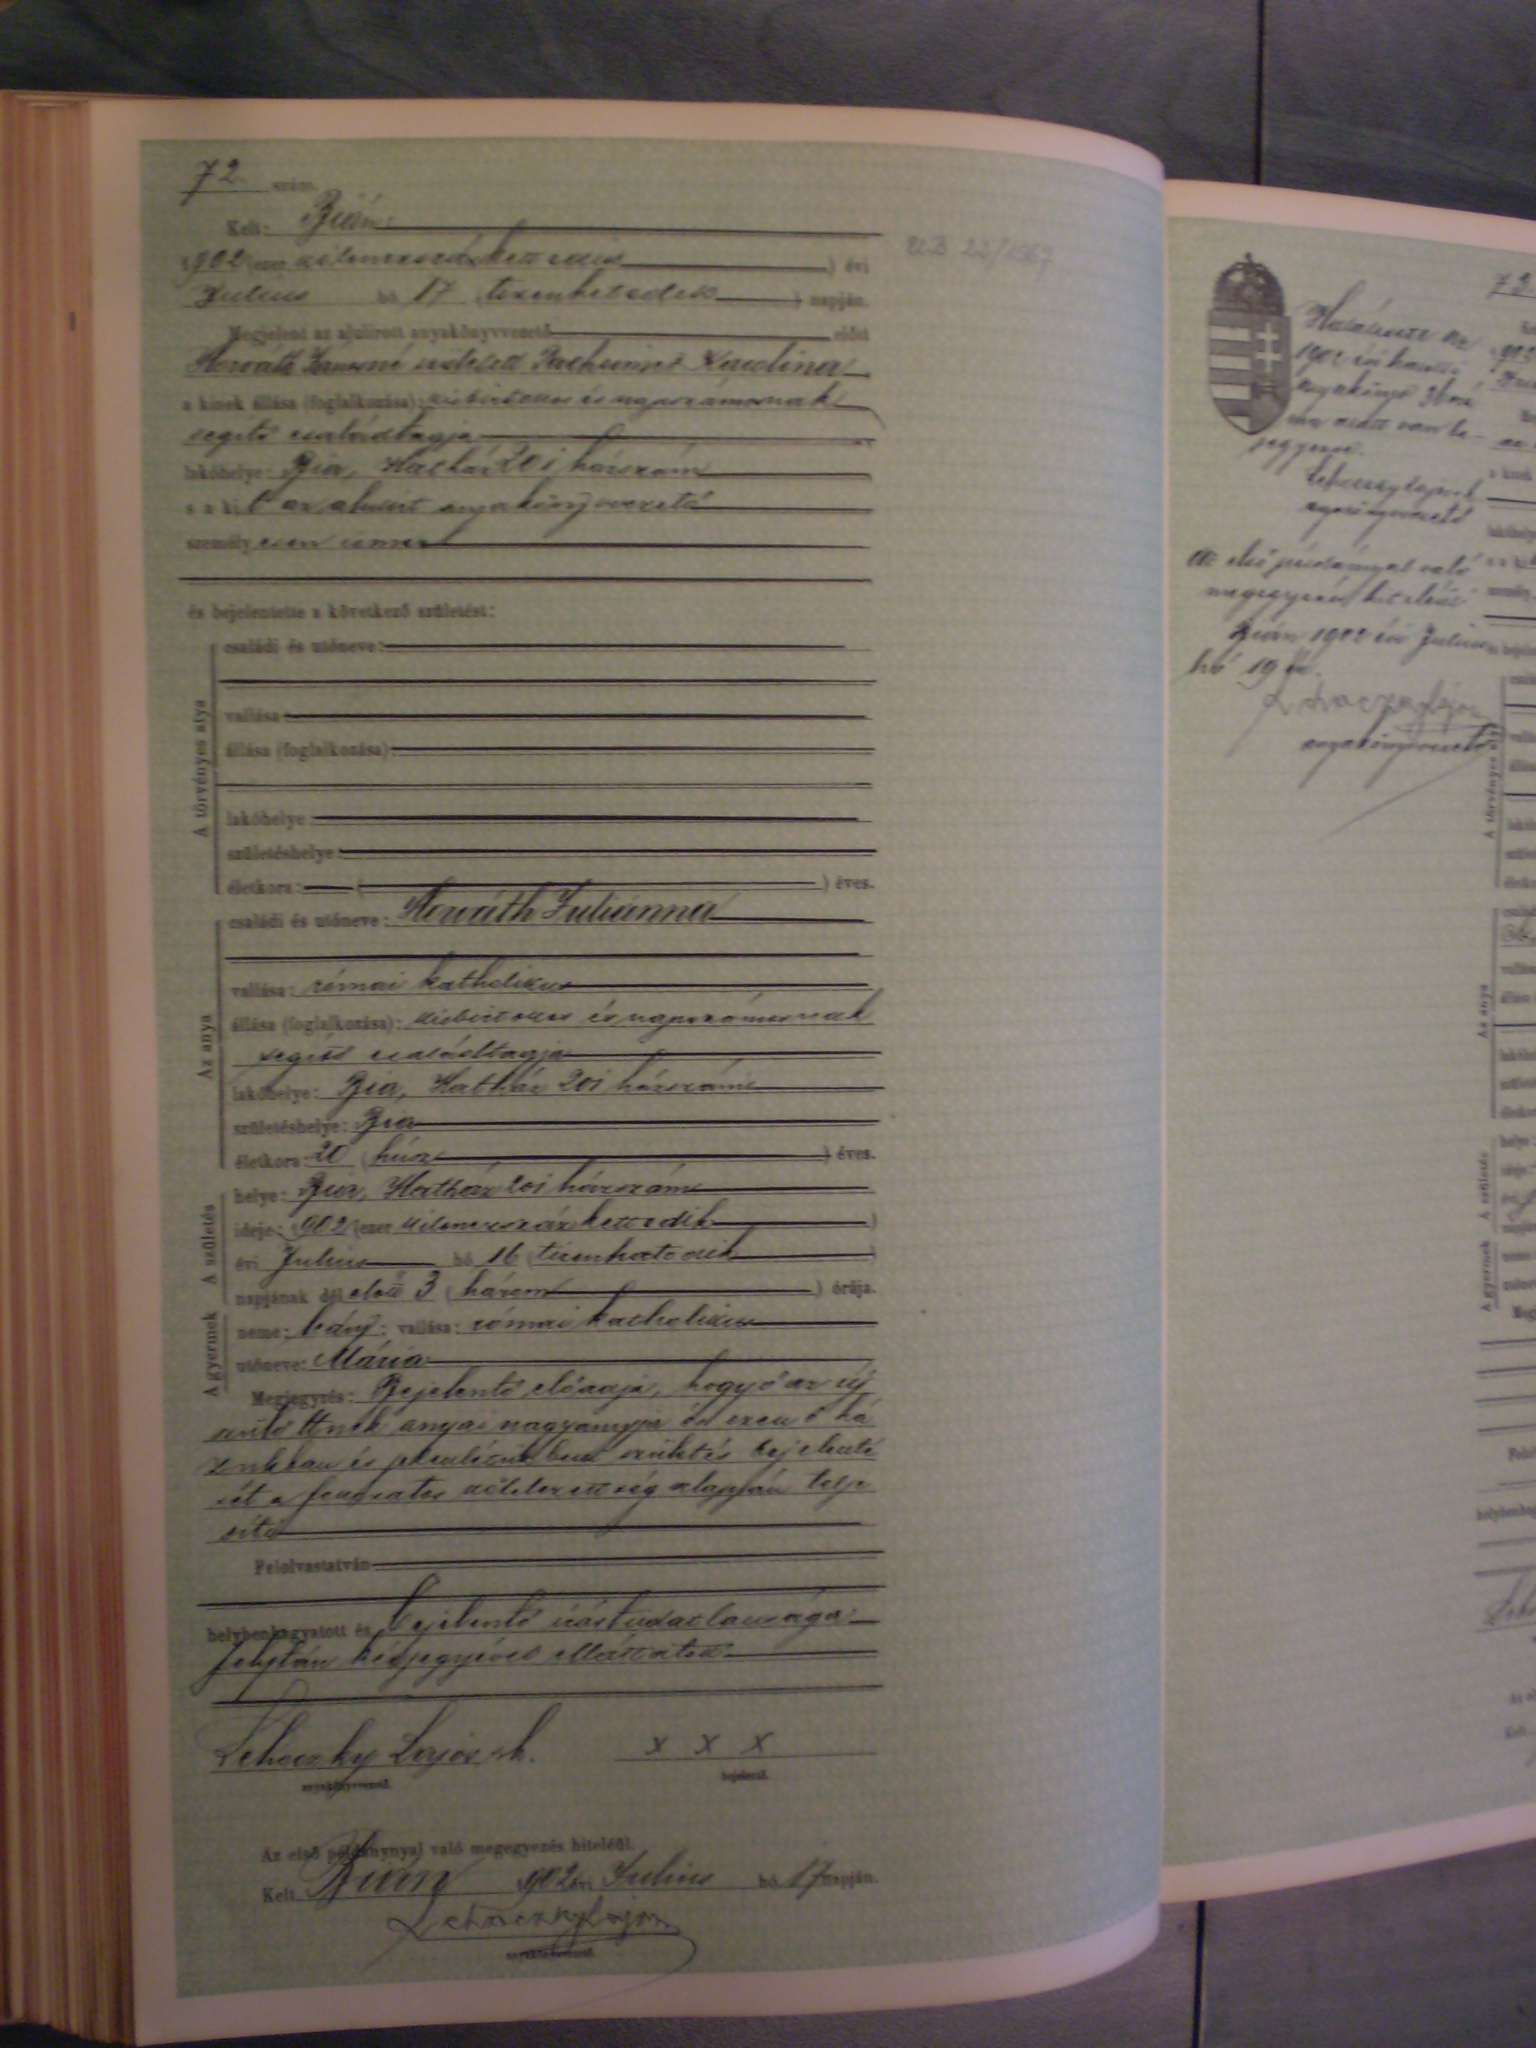 72. szám.
Kelt: Bián
1902 (ezer kilenczszázkettedik) évi
Julius hó 17 (tizenhetedik) napján.
Megjelent az alulírott anyakönyvvezető előtt
Horváth született Karolina
a kinek állása (foglalkozása): kisbirtokos és napszámosnak
segítő családtagja
lakóhelye: Bia, Hatház 201 házszám
s a kit az alulírt anyakönyvvezető
személyesen ismer
és bejelentette a következő születést:
A törvényes atya
családi és utóneve:
vallása:
állása (foglalkozása):
lakóhelye:
születéshelye:
életkora: ( ) éves.
Az anya
családi és utóneve: Horváth Juliánna
vallása: római katholikus
állása (foglalkozása): kisbirtokos és napszámosnak
segítő családtagja
lakóhelye: Bia, Hatház 201 házszám
születéshelye: Bia
életkora: 20 (húsz) éves.
A születés
helye: Bia, Hatház 201 házszám
ideje: 1902 (ezer kilenczszázkettedik)
évi Julius hó 16 (tizenhatodik)
napjának dél előtt 3 (három) órája.
A gyermek
neme: leány; vallása: római katholikus
utóneve: Mária
Megjegyzés: Bejelentő előadja, hogy ő az új
szülöttnek anyai nagyanyja és ezen ő há
zukban és jelenlétében született bejelenté
sét a fennálló kötelezettség alapján telje
síti
Felolvastatván
helybenhagyatott és bejelentő írástudatlansága
folytán kézjegyével elláttatott
Lehoczky Lajos sk.
anyakönyvvezető.
x x x
bejelentő.
Az első példánynyal való megegyezés hiteléül.
Kelt Bián 1902 évi Julius hó 17 napján.
Lehoczky Lajos
anyakönyvvezető.
U.B 22/1967
72
Halálozása az
1902 évi halotti
anyakönyv
szám alatt van be-
jegyezve.
Lehoczky Lajos sk
anyakönyvvezető
Az első példánynyal való
megegyezés hiteléül
Bián 1902 évi Julius
hó 19 én.
Lehoczky Lajos
anyakönyvvezető